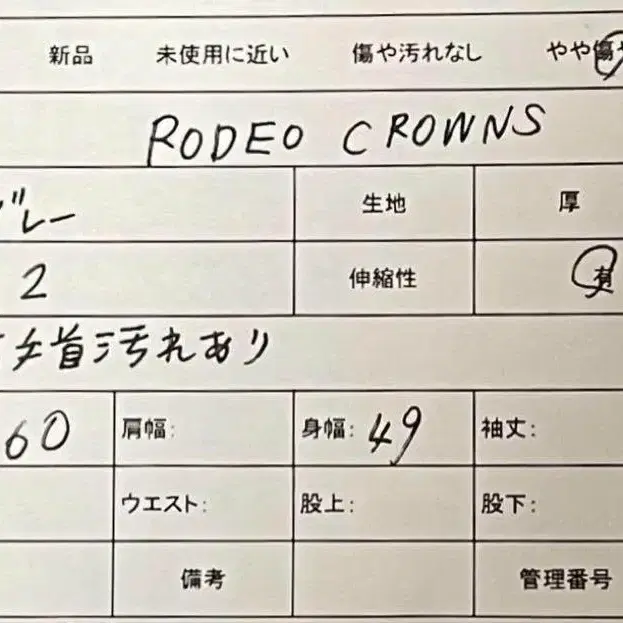 新品 未使用に近い 傷や汚れなし やや傷や
RODEO CROWNS
グレー 生地 厚
2 伸縮性 有
手首汚れあり
60 肩幅: 身幅: 49 袖丈:
ウエスト: 股上: 股下:
備考 管理番号